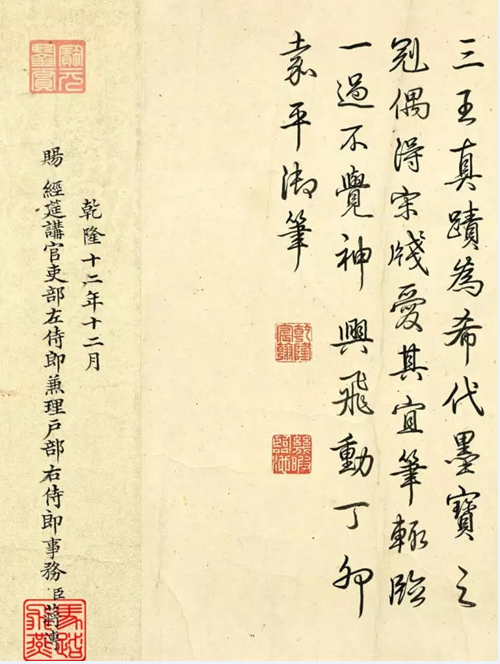 三王真蹟為希代墨寶之
冠偶得宋牋愛其宜筆輒臨
一過不覺神興飛動丁卯
嘉平御筆
乾隆宸翰
幾暇臨池
乾隆十二年十二月
賜 經筵講官吏部左侍郎兼理戶部右侍郎事務臣蔣溥